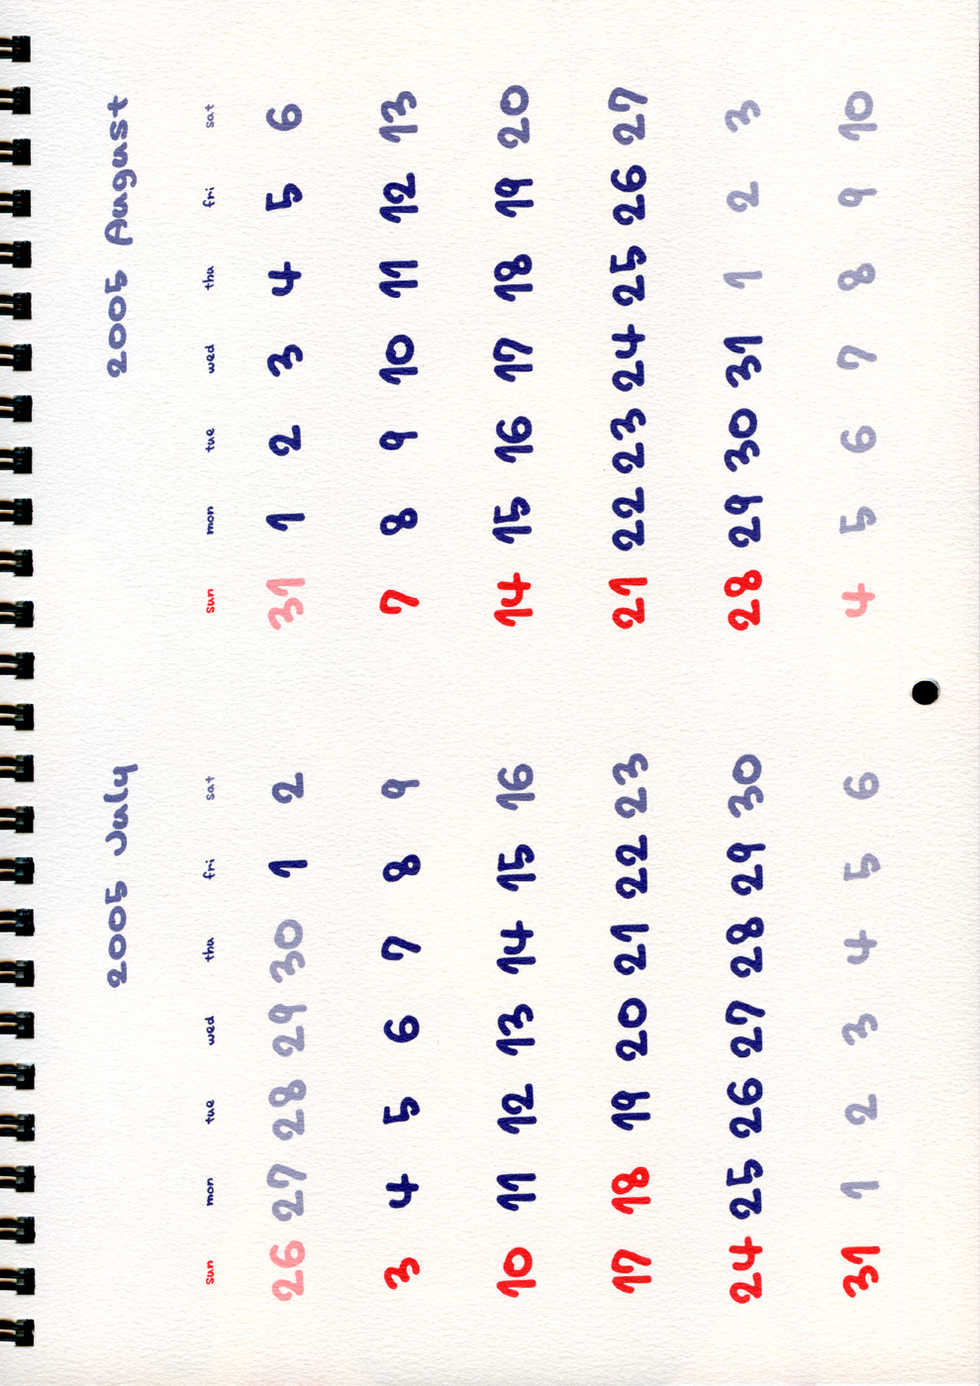 2005 July
sun mon tue wed thu fri sat
26 27 28 29 30 1 2
3 4 5 6 7 8 9
10 11 12 13 14 15 16
17 18 19 20 21 22 23
24 25 26 27 28 29 30
31 1 2 3 4 5 6
2005 August
sun mon tue wed thu fri sat
31 1 2 3 4 5 6
7 8 9 10 11 12 13
14 15 16 17 18 19 20
21 22 23 24 25 26 27
28 29 30 31 1 2 3
4 5 6 7 8 9 10